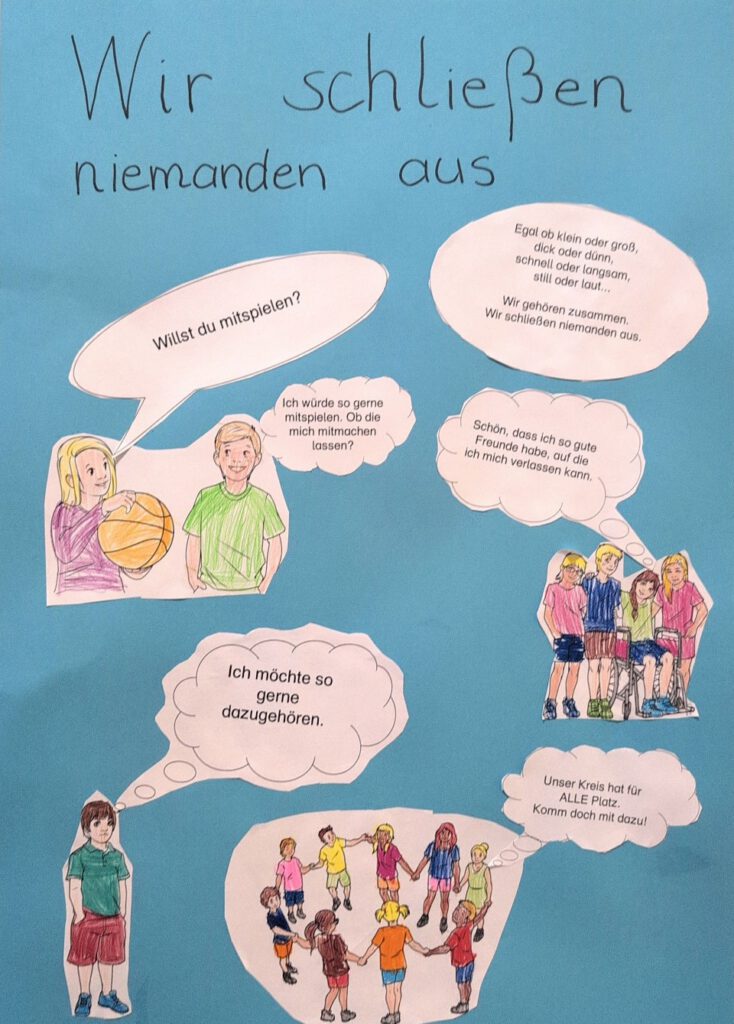 Wir schließen
niemanden aus
Egal ob klein oder groß,
dick oder dünn,
schnell oder langsam,
still oder laut...
Wir gehören zusammen.
Wir schließen niemanden aus.
Willst du mitspielen?
Ich würde so gerne
mitspielen. Ob die
mich mitmachen
lassen?
Schön, dass ich so gute
Freunde habe, auf die
ich mich verlassen kann.
Ich möchte so
gerne
dazugehören.
Unser Kreis hat für
ALLE Platz.
Komm doch mit dazu!